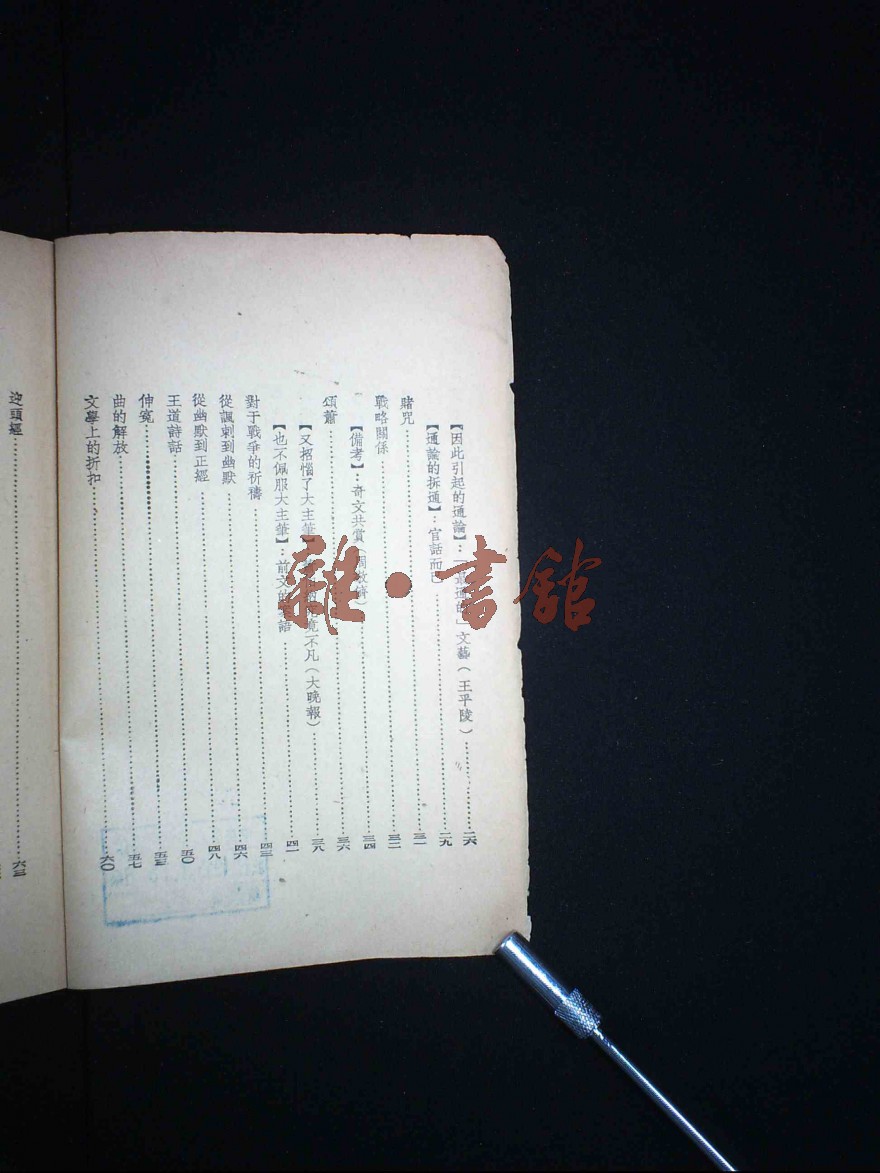 【因此引起的通論】：「最通的」文藝(王平陵)……二六
【通論的拆通】：官話而已……二九
賭咒……三一
戰略關係……三二
【備考】：奇文共賞(周敬儕)……三四
頌蕭……三六
【又招惱了大主筆】 不凡(大晚報)……三八
【也不佩服大主筆】 前文的 話……四一
對于戰爭的祈禱……四三
從諷刺到幽默……四六
從幽默到正經……四八
王道詩話……五〇
伸冤……五三
曲的解放……五七
文學上的折扣……六〇
迎頭經……六三
雜·書館